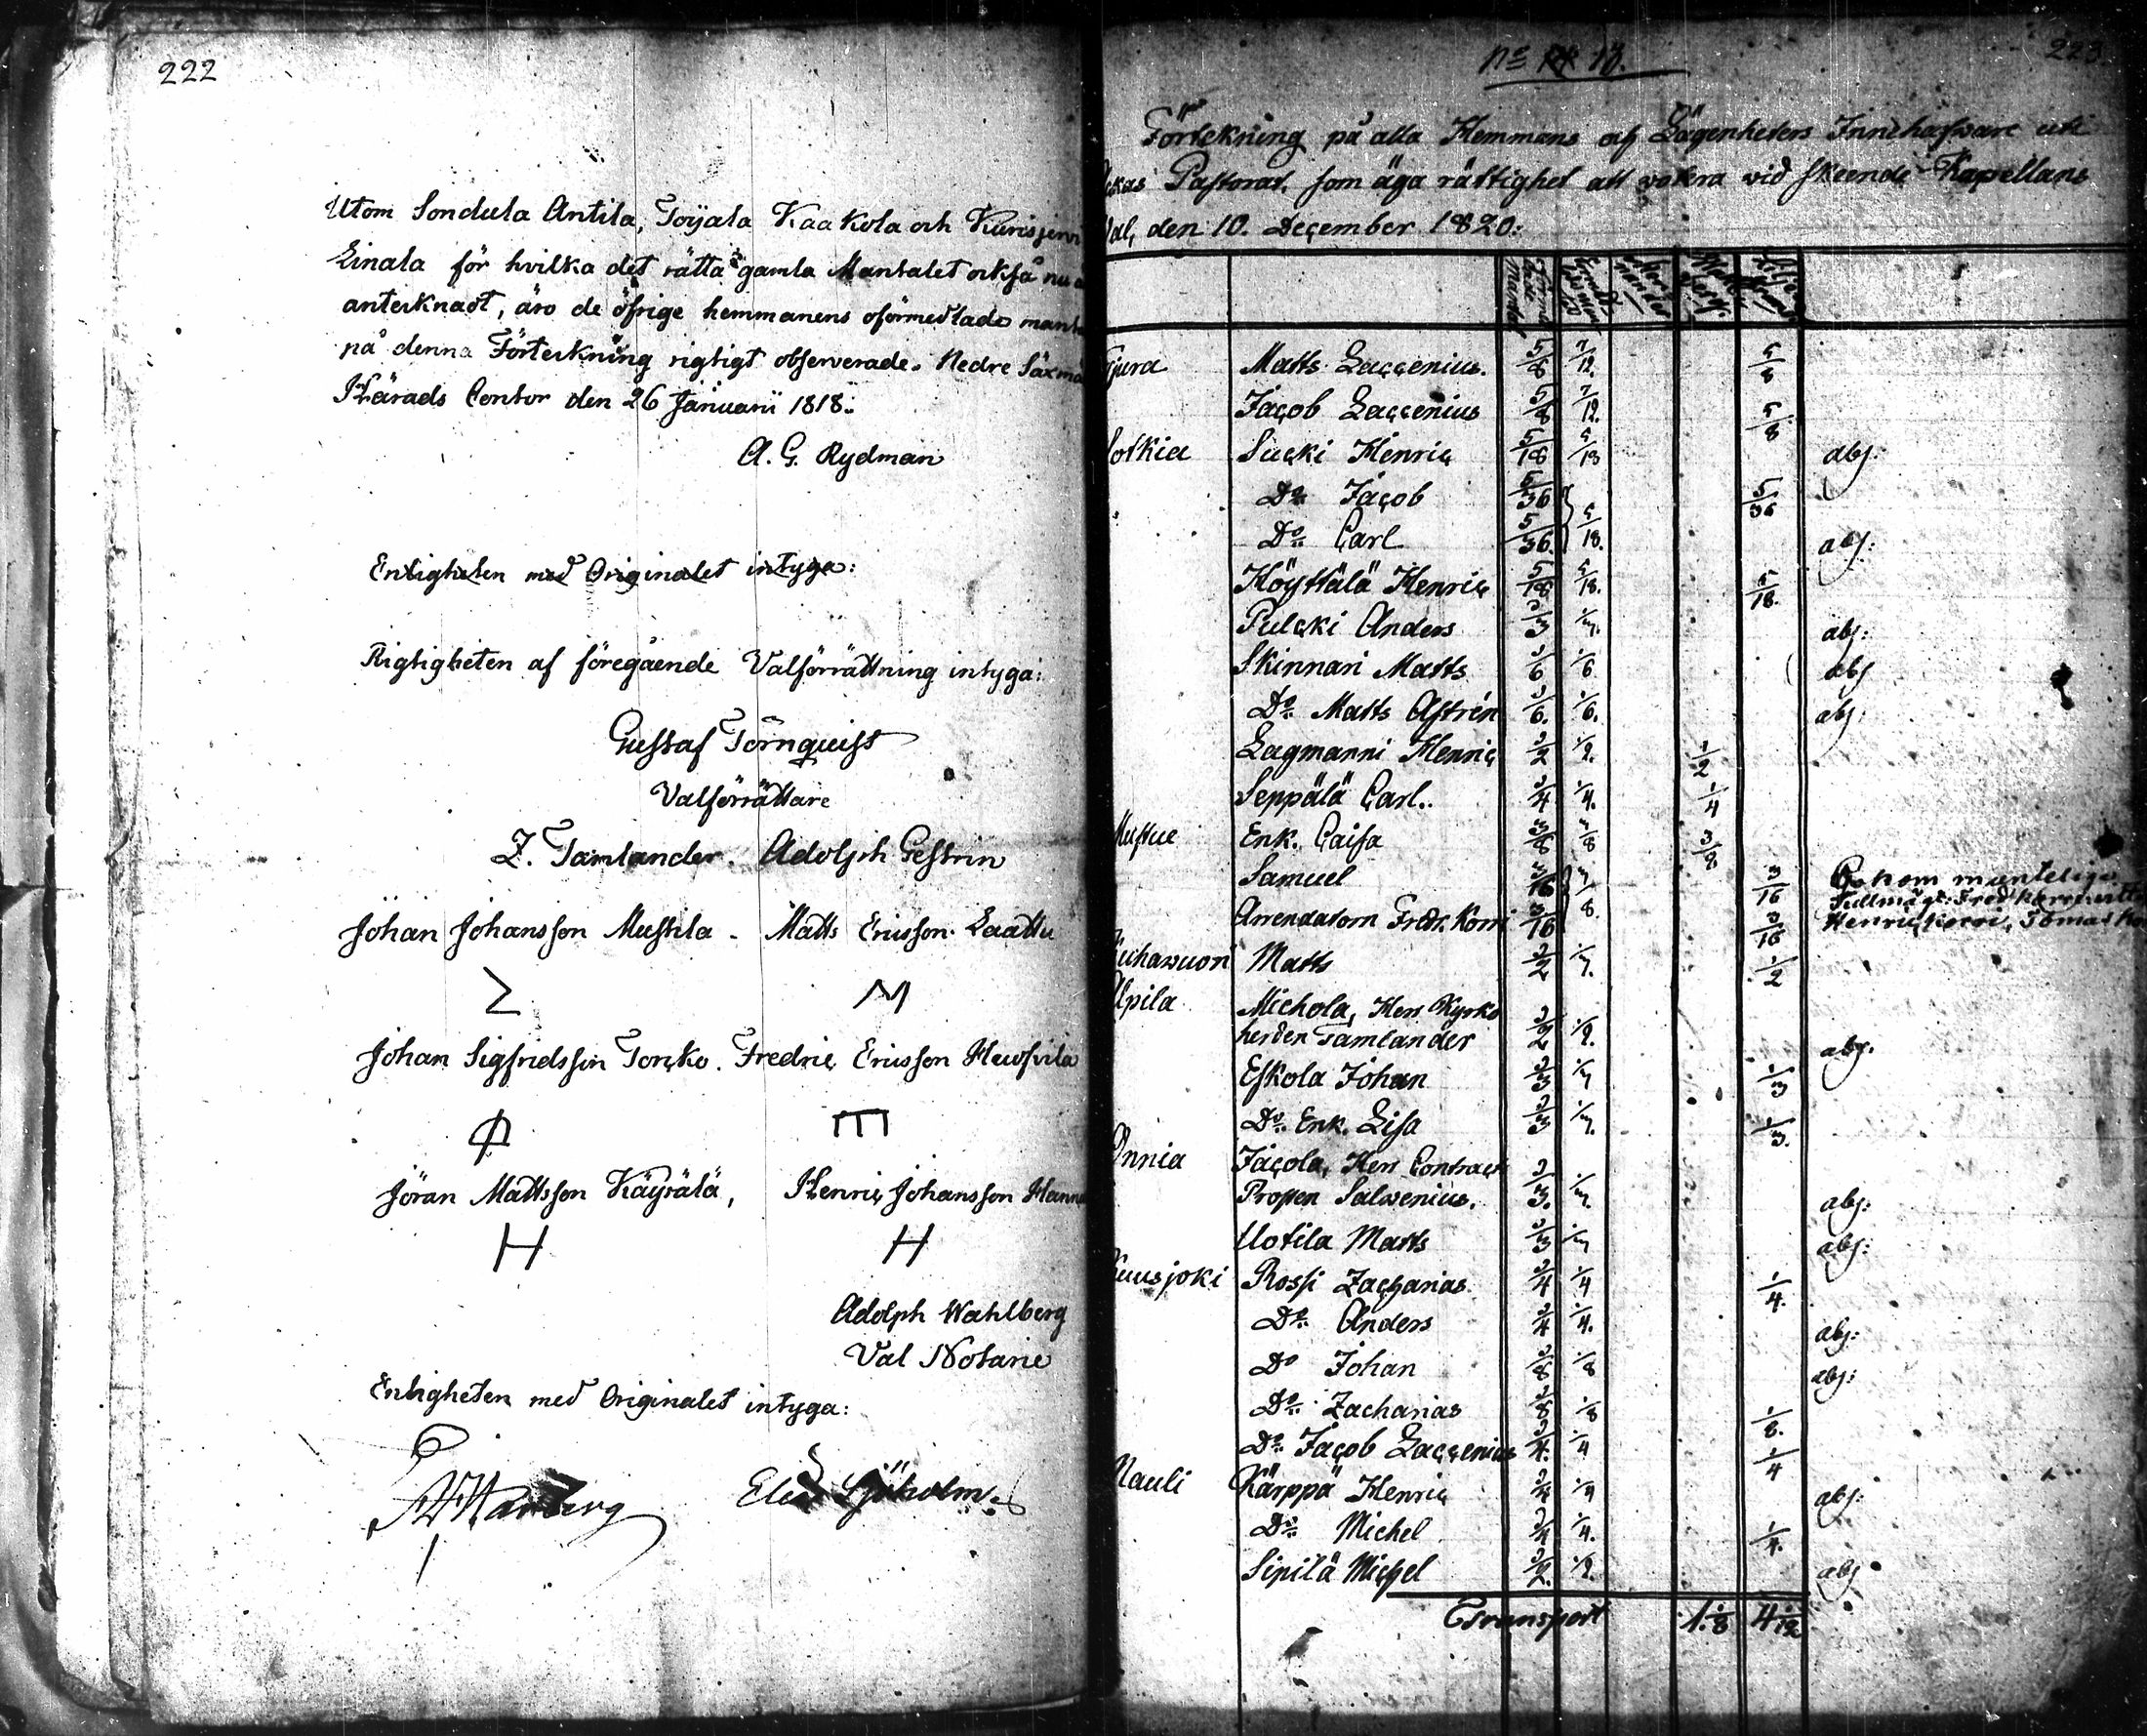 222
Utom Sondula Antila, Toÿala Kaakola och Kurisjervi
Einala för hvilka det rätta gamla Mantalet också nu
anteknadt, äro de öfrige hemmanens oförmedlade mant
på denna Förtekning rigtigt observerade. Nedre Säxmä
Härads Contor den 26 Januarii 1818.
A. G. Rydman
Enligheten med Originalet intyga:
Rigtigheten af föregående Valförrättning intyga:
Gustaf Törnquist
Valförrättare
Z. Tamlander. Adolph Gestrin
Johan Johansson Mustila. Matts Ericsson Laattu
Johan Sigfridsson Torcko. Fredric Ericsson
Jöran Mattsson Käyrälä, Henric Johansson Hann
H H
Adolph Wahlberg
Val Notarie
Enligheten med Originalet intyga:
Sjöholm.
223
No 13.
Förtekning på alla Hemmans och Lägenheters Innehafware uti
Pastorat, som äga rättighet att votera vid skeende Kapellans
Val, den 10. December 1820:
Matts Laccenius. 5/8 7/12. 5/8
Jacob Laccenius 5/8 7/12. 5/8
Sotkia Sucki Henric 5/18 5/18 abs:
Do Jacob 5/36 5/36
Do Carl 5/36. 5/18. abs:
Köyttälä Henric 5/18 5/18. 5/18.
Pulcki Anders 1/3 abs:
Skinnari Matts 1/6 1/6 abs
Do Matts Astrén 1/6. 1/6. abs:
Lagmanni Henric 1/2 1/2. 1/2
Seppälä Carl. 1/4 1/4. 1/4
Enk. Caisa 3/8 3/8 3/8
Samuel 3/16 3/16
Arrendatorn Fredr. Korri 3/16 3/8. 3/16 Henric Korri, Tomas
Matts 1/2 1/2
Alpila Michola, Herr Kyrko
herden Tamlander 1/2 1/2. abs.
Eskola Johan 1/3 1/3
Do Enk. Lisa 1/3 1/3.
Onnia Jacola, Herr Contracts
Prosten Salwenius. 1/3. abs:
Uotila Matts 1/3 abs:
Kuusjoki Rossi Zacharias 1/4 1/4 1/4.
Do Anders 1/4 1/4. abs:
Do Johan 1/8 1/8 abs:
Do Zacharias 1/8 1/8 1/8.
Do Jacob Laccenius 1/4. 1/4 1/4
Nauli Kärppä Henric 1/4 1/4 abs:
Do Michel 1/4 1/4. 1/4.
Sipilä Michel 1/2. 1/2. abs
Transport 1 1/8 4 1/12